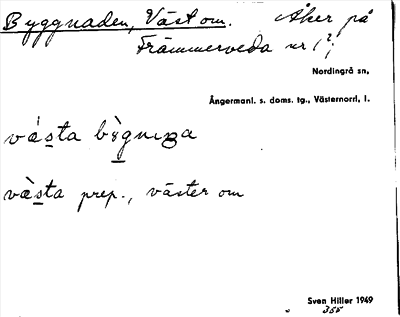 Byggnaden, Väst om. Åker på
Främmerveda nr 1?;
Nordingrå sn,
Ångermanl. s. doms. tg., Västernorrl. l.
vä̀sta by̆gnuna
vä̀sta prep., väster om
Sven Hiller 1949
355